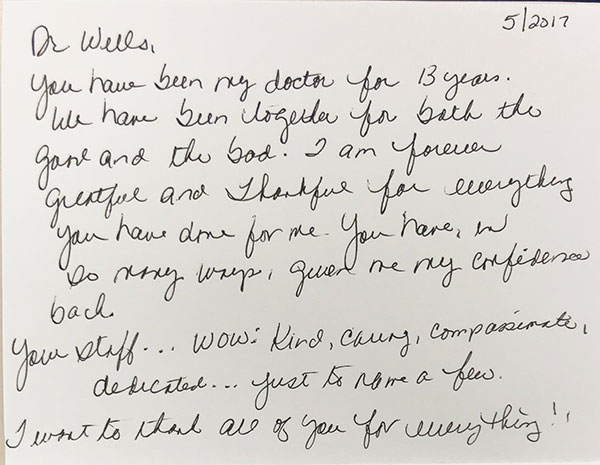 5/2017
Dr Wells,
You have been my doctor for 13 years.
We have been together for both the
good and the bad. I am forever
grateful and thankful for everything
you have done for me. You have, in
so many ways, given me my confidence
back.
Your staff... WOW: Kind, caring, compassionate,
dedicated... just to name a few.
I want to thank all of you for everything!,